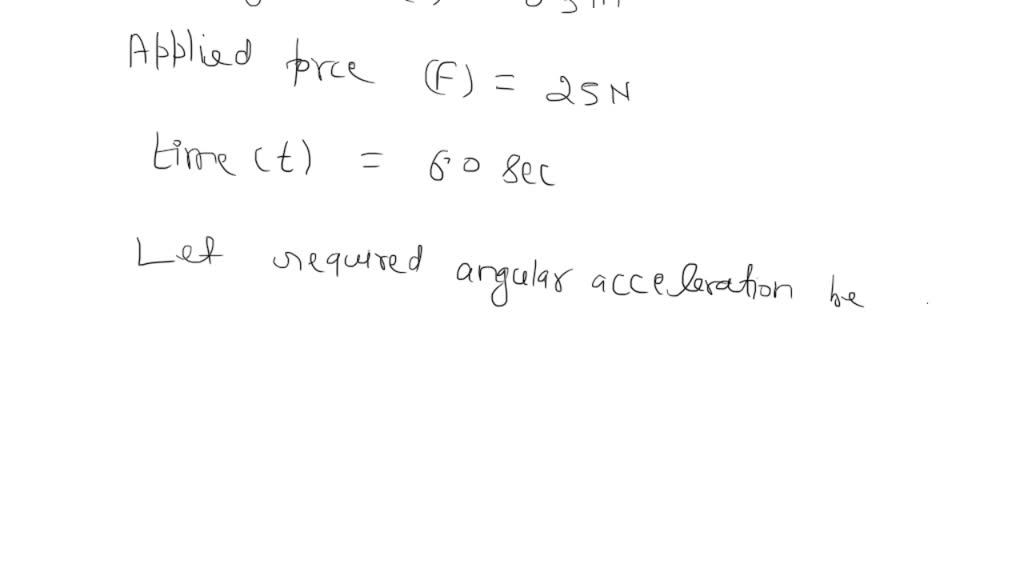 Applied force (F) = 25N
time (t) = 60 sec
Let required angular acceleration be